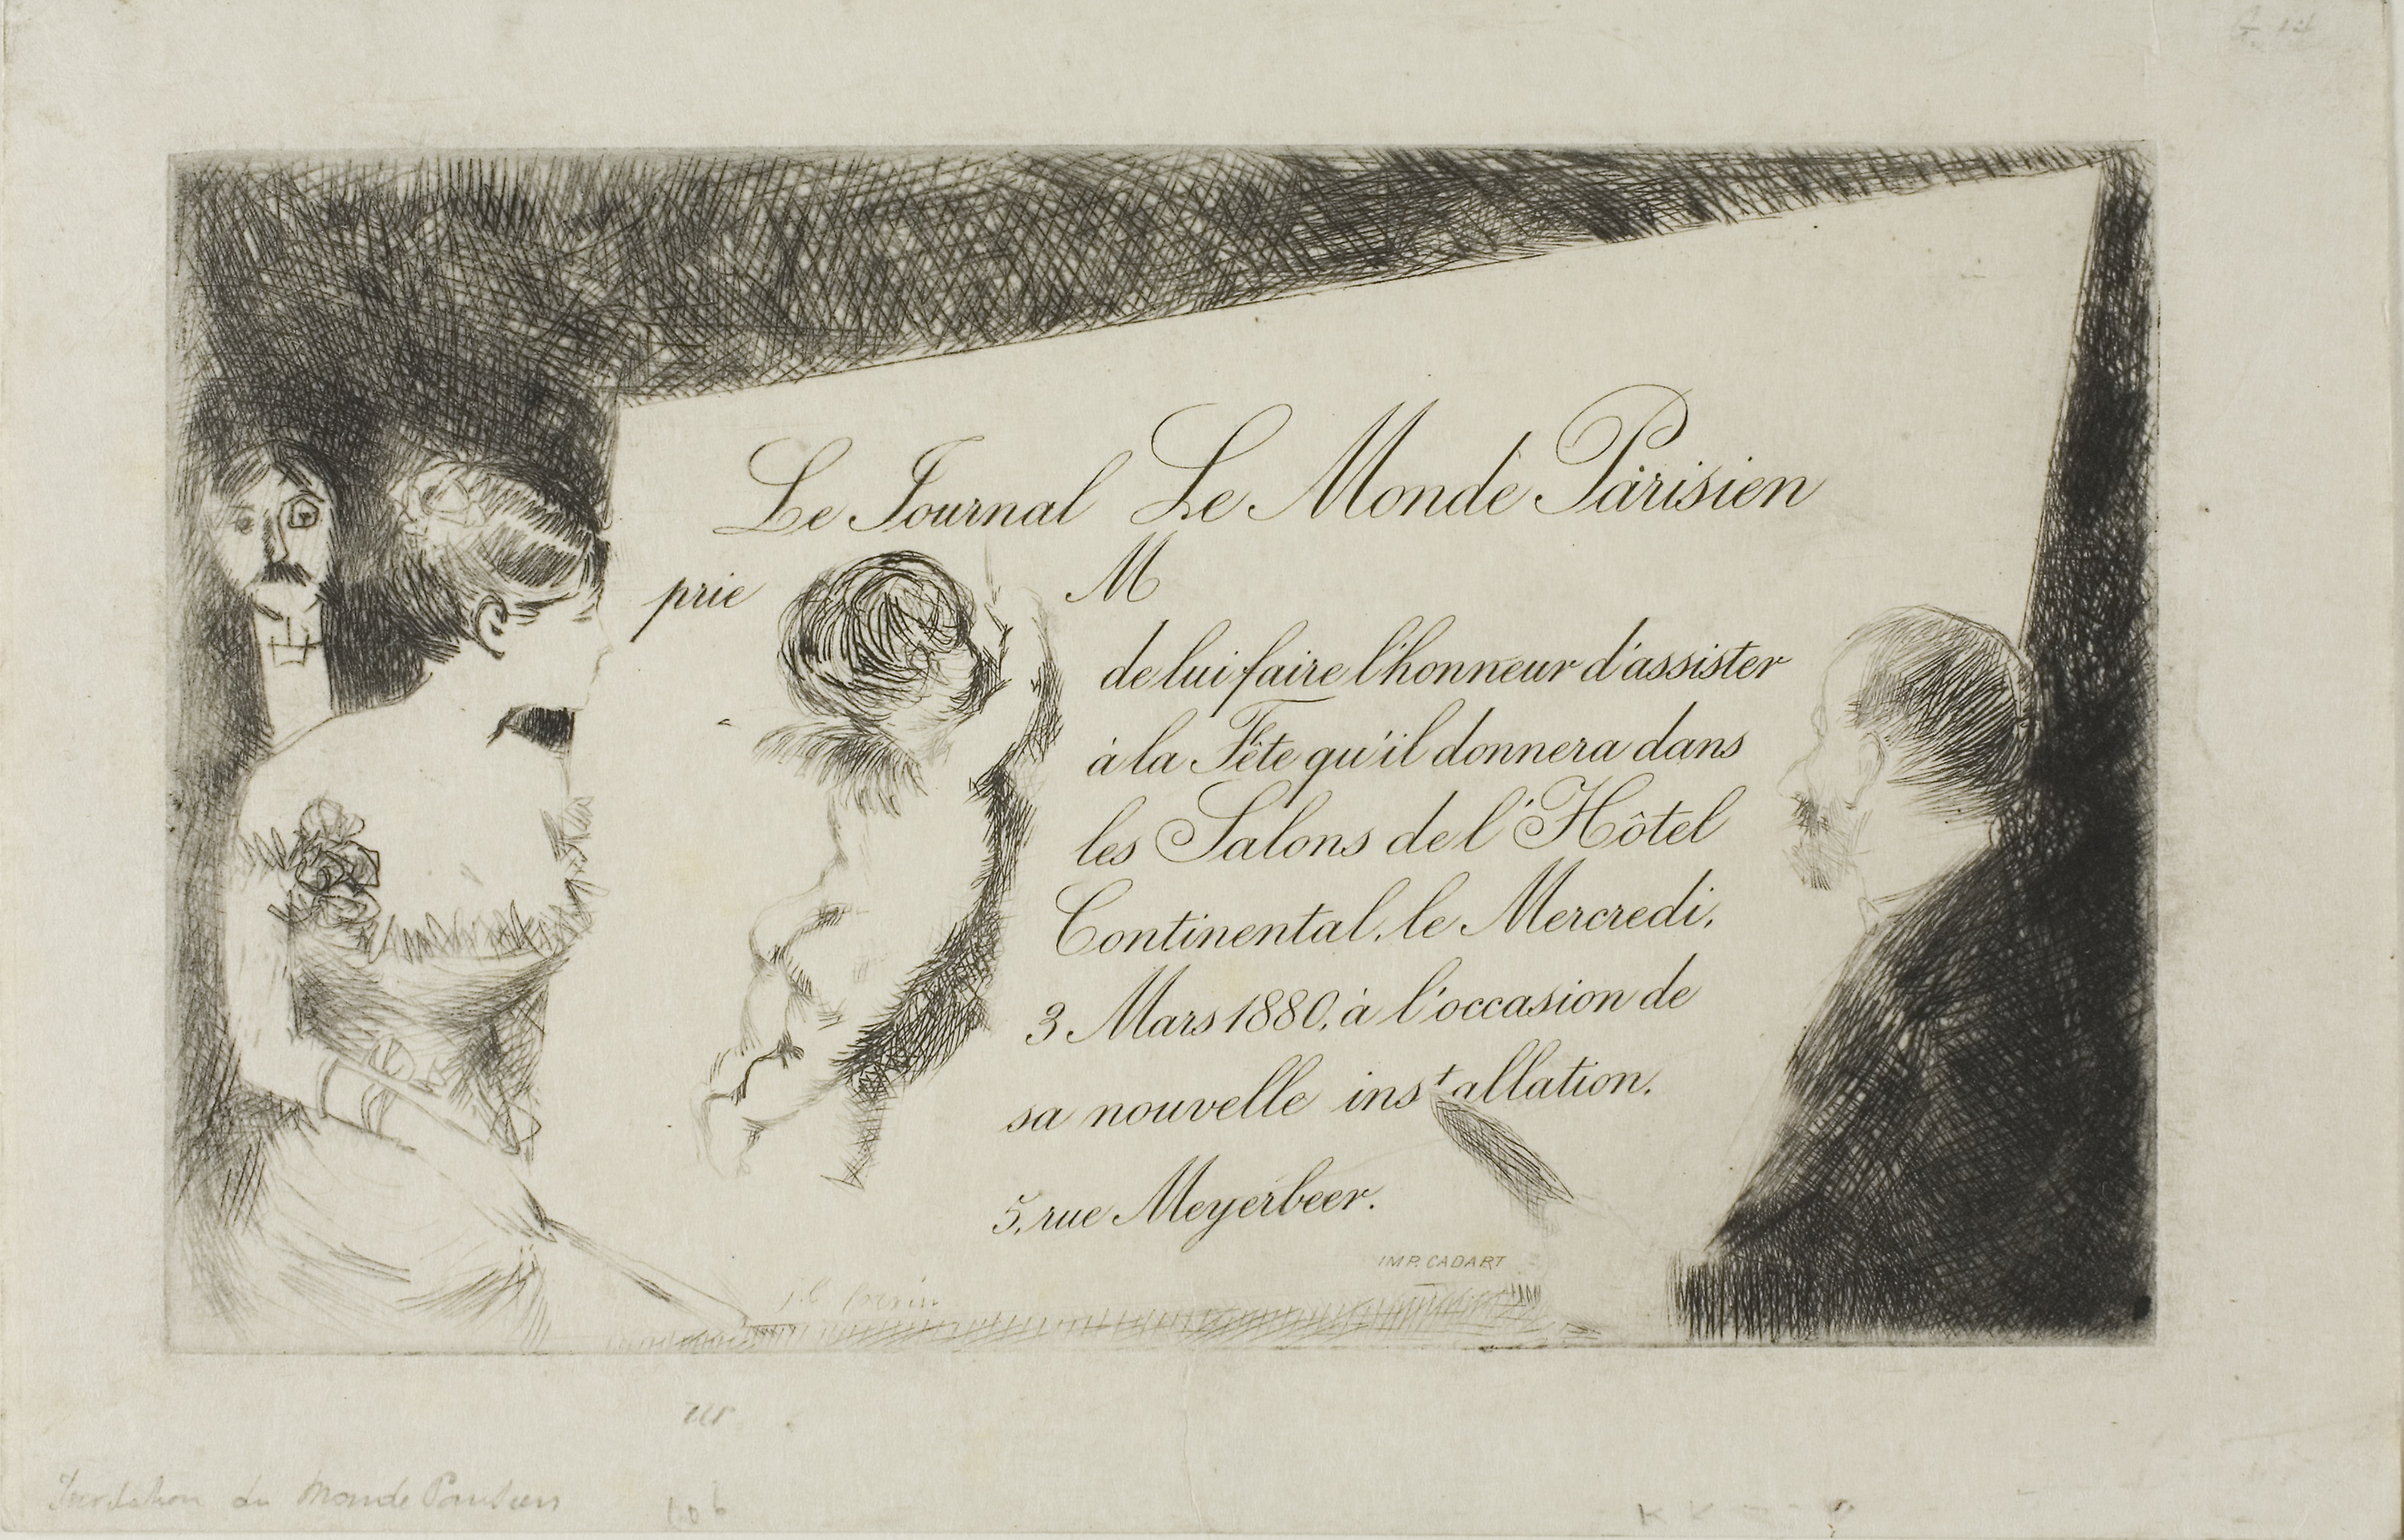 Le Journal Le Monde Parisien
prie M
de lui faire l'honneur d'assister
à la Fête qu'il donnera dans
les Salons de l'Hôtel
Continental, le Mercredi,
3 Mars 1880, à l'occasion de
sa nouvelle installation.
5, rue Meyerbeer.
IMP. CADART
du Monde Parisien